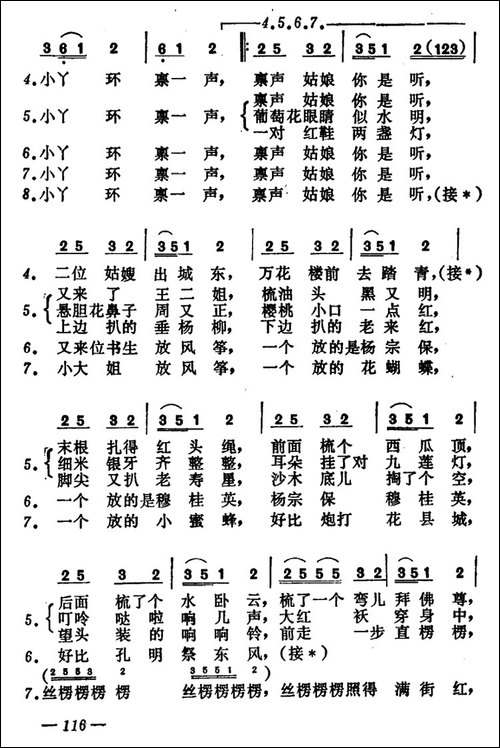 4.5.6.7.
3 6 1 2 | 6 1 2 ‖: 2 5 3 2 | 3 5 1 2 (1 2 3) |
4.小丫 环 禀一 声, 禀声 姑娘 你 是 听,
禀声 姑娘 你 是 听,
5.小丫 环 禀一 声, 葡萄花眼睛 似 水 明,
一对 红鞋 两 盏 灯,
6.小丫 环 禀一 声, 禀声 姑娘 你 是 听,
7.小丫 环 禀一 声, 禀声 姑娘 你 是 听,
8.小丫 环 禀一 声, 禀声 姑娘 你 是 听,(接*)
2 5 3 2 | 3 5 1 2 | 2 5 3 2 | 3 5 1 2 |
4. 二位 姑嫂 出 城 东, 万花 楼前 去 踏 青,(接*)
又来 了 王 二 姐, 梳油 头 黑 又 明,
5. 悬胆花鼻子 周 又 正, 樱桃 小口 一 点 红,
上边 扒的 垂 杨 柳, 下边 扒的 老 来 红,
6. 又来位书生 放 风 筝, 一个 放的是杨 宗 保,
7. 小大 姐 放 风 筝, 一个 放的 花 蝴 蝶,
2 5 3 2 | 3 5 1 2 | 2 5 3 2 | 3 5 1 2 |
末根 扎得 红 头 绳, 前面 梳个 西 瓜 顶,
5. 细米 银牙 齐 整 整, 耳朵 挂了对 九 莲 灯,
脚尖 又扒 老 寿 星, 沙木 底儿 掏了个 空,
6. 一个 放的是穆 桂 英, 杨宗 保 穆 桂 英,
7. 一个 放的 小 蜜 蜂, 好比 炮打 花 县 城,
2 5 3 2 | 3 5 1 2 | 2 5 5 5 3 2 | 3 5 1 2 |
后面 梳了个 水 卧 云, 梳了一个 弯儿 拜 佛 尊,
5. 叮呤 哒啦 响 几 声, 大红 袄 穿 身 中,
望头 装的 响 响 铃, 前走 一步 直 楞 楞,
6. 好比 孔明 祭 东 风,(接*)
(2 5 5 3 2) (3 5 5 1 2)
7.丝楞楞楞 楞 丝楞楞 楞,丝楞楞楞照得 满 街 红,
— 116 —